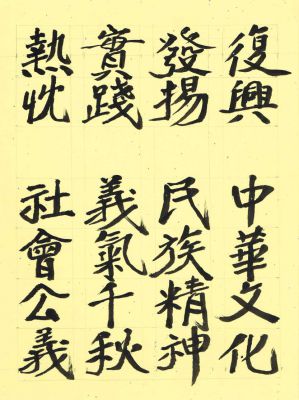 復興中華文化
發揚民族精神
實踐義氣千秋
熱忱社會公義